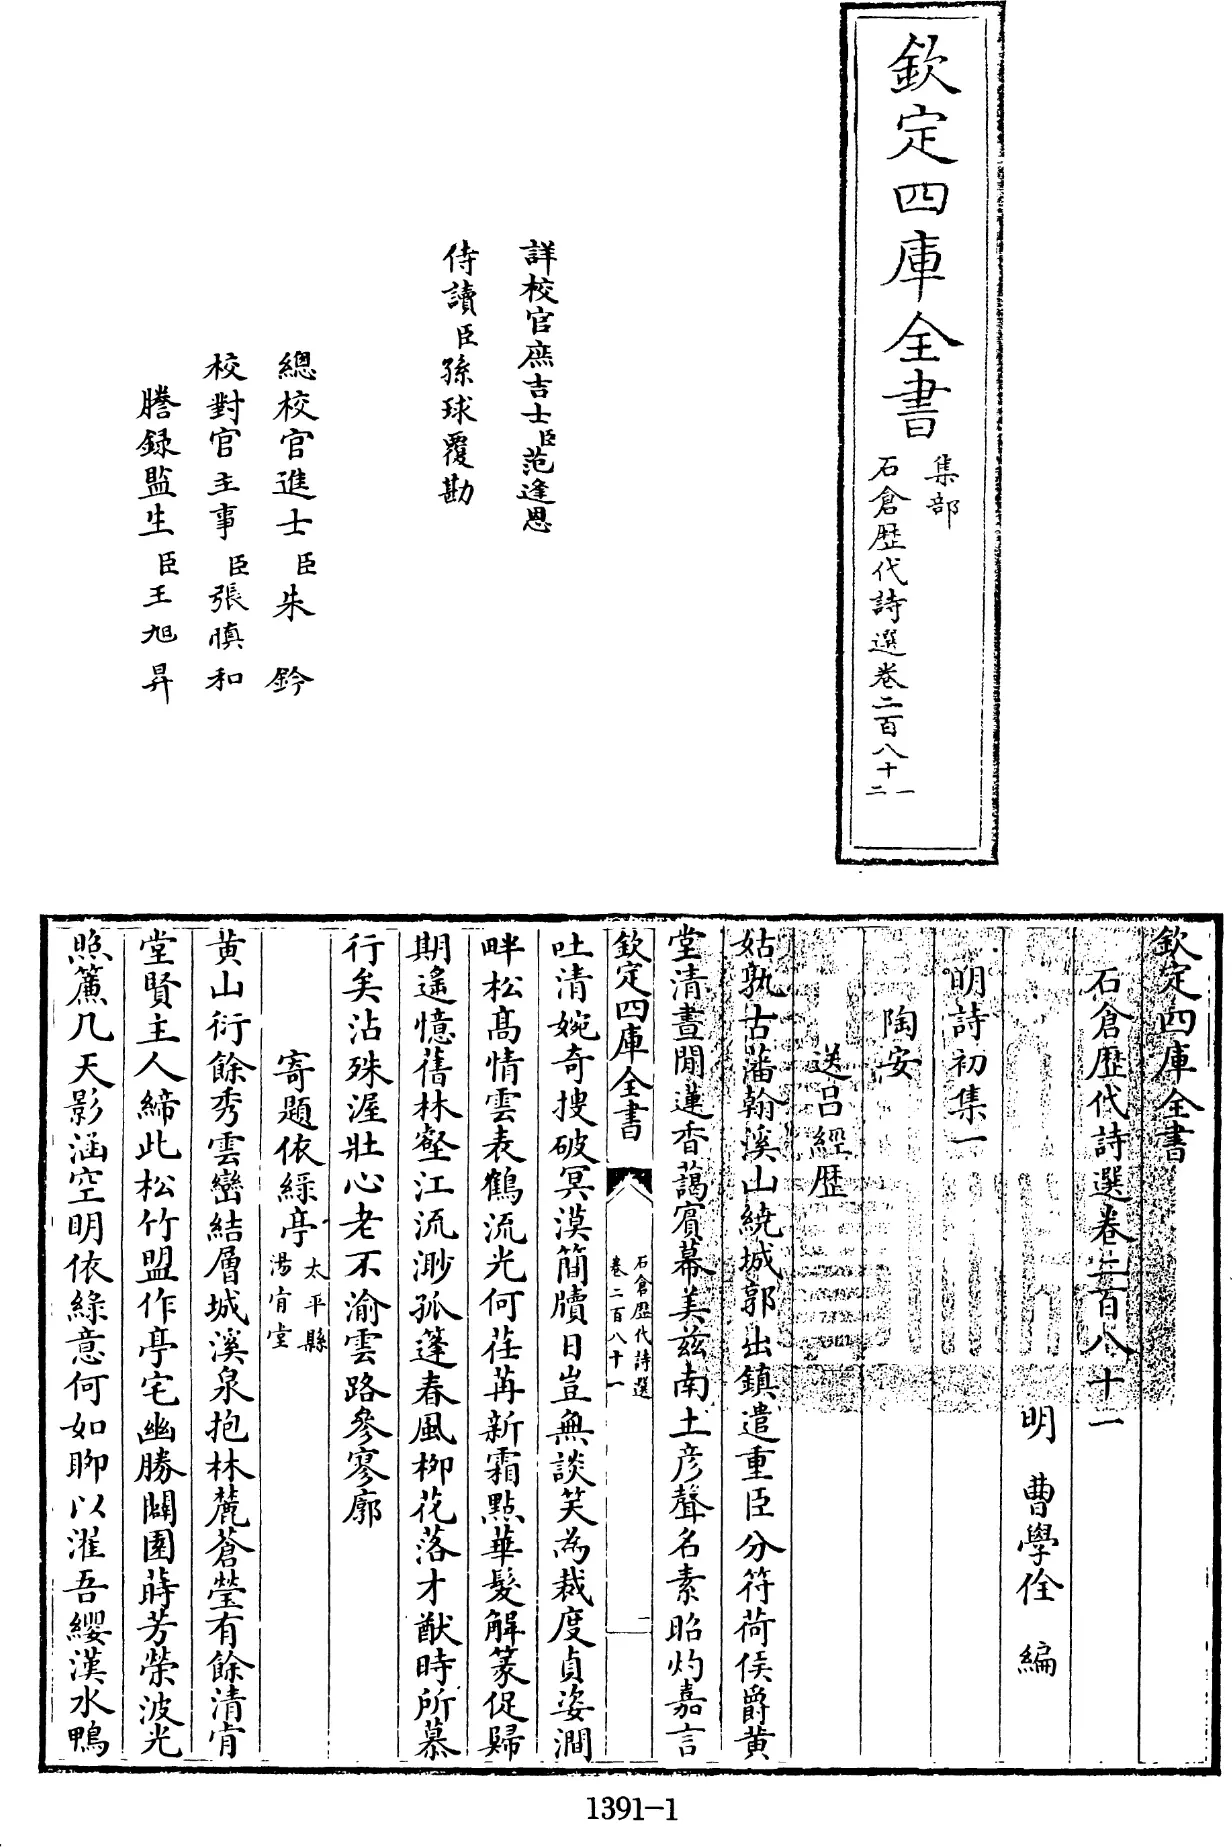 欽定四庫全書
集部
石倉歴代詩選卷二百八十一
二
詳校官庶吉士臣范逢恩
侍讀臣孫球覆勘
總校官進士臣朱鈐
校對官主事臣張慎和
謄録監生臣王旭昇
欽定四庫全書
石倉歴代詩選卷二百八十一
明 曹學佺 編
明詩初集一
陶安
送呂經歴
姑孰古藩翰溪山繞城郭出鎮遣重臣分符荷侯爵黄
堂清晝閒蓮香藹賓幕美兹南土彦聲名素昭灼嘉言
欽定四庫全書
石倉歴代詩選
卷二百八十一
一
吐清婉奇搜破冥漠簡牘日豈無談笑為裁度貞姿澗
畔松髙情雲表鶴流光何荏苒新霜點華髮解篆促歸
期遙憶舊林壑江流渺孤蓬春風柳花落才猷時所慕
行矣沾殊渥壯心老不渝雲路參寥廓
寄題依緑亭
太平縣
湯肯堂
黄山衍餘秀雲巒結層城溪泉抱林麓蒼瑩有餘清肯
堂賢主人締此松竹盟作亭宅幽勝闢園蒔芳榮波光
照簾几天影涵空明依緑意何如聊以濯吾纓漢水鴨
1391-1